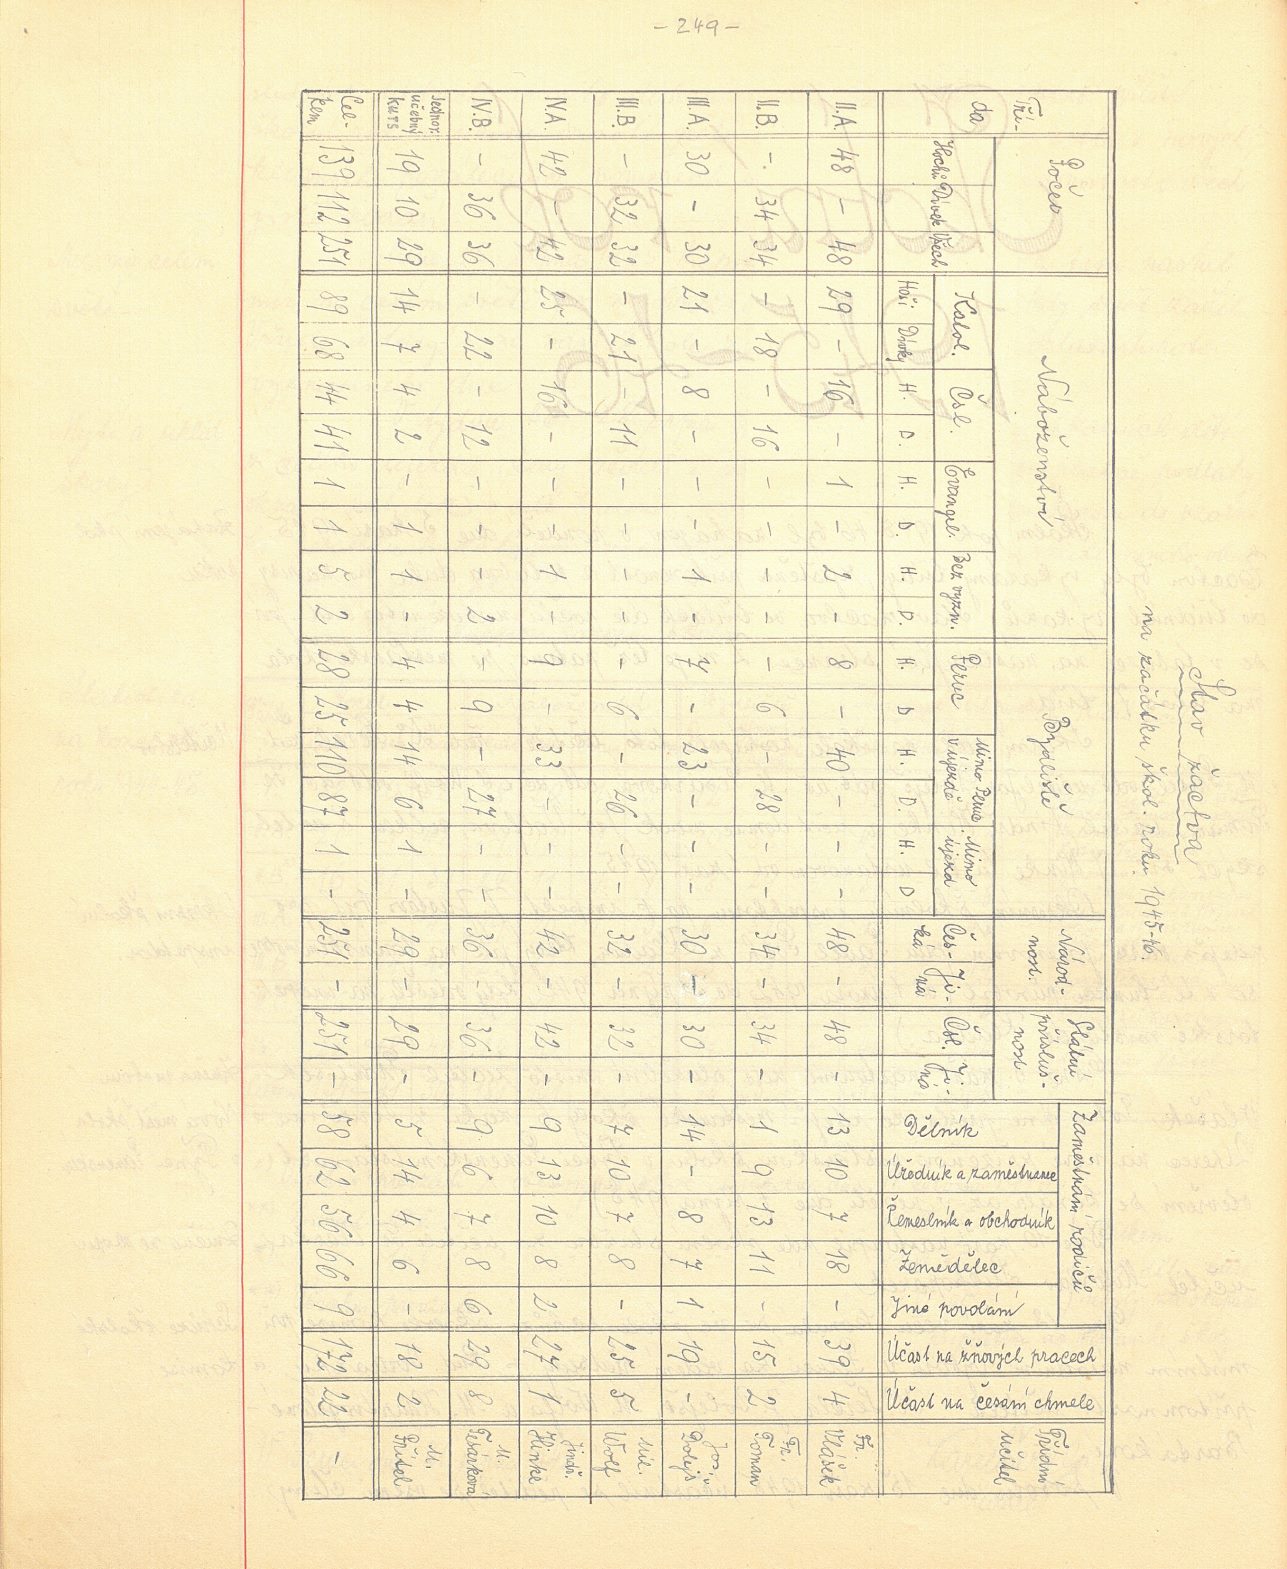 - 249 -
Stav žactva
na začátku škol. roku 1945-46.
Tří-
da
Počet
Hochů Dívek Všech
Náboženství
Katol. Čsl. Evangel. Bez vyzn.
Hoši Dívky H. D. H. D. H. D.
Bydliště
Peruc Mimo Peruc v újezdě Mimo újezd
H. D H. D. H. D
Národ-
nost
Čes-
ká
Ji-
ná
Státní
přísluš-
nost
Čsl. Ji-
ná
Zaměstnání rodičů
Dělník
Úředník a zaměstnanec
Řemeslník a obchodník
Zemědělec
Jiné povolání
Účast na žňových pracech
Účast na česání chmele
Třídní
učitel
II.A. 48 - 48 29 - 16 - 1 - 2 - 8 - 40 - - - 48 - 48 - 13 10 7 18 - 39 4 Fr. Vlášek
II.B. - 34 34 - 18 - 16 - - - - - 6 - 28 - - 34 - 34 - 1 9 13 11 - 15 2 Fr. Toman
III.A. 30 - 30 21 - 8 - - - 1 - 7 - 23 - - - 30 - 30 - 14 - 8 7 1 19 - Jos. Dolejš
III.B. - 32 32 - 21 - 11 - - - - - 6 - 26 - - 32 - 32 - 7 10 7 8 - 25 5 Mil. Wolf
IV.A. 42 - 42 25 - 16 - - - 1 - 9 - 33 - - - 42 - 42 - 9 13 10 8 2 27 1 Jindř. Hinke
IV.B. - 36 36 - 22 - 12 - - - 2 - 9 - 27 - - 36 - 36 - 9 6 7 8 6 29 8 M. Tesárková
Jednor.
učebný
kurs 19 10 29 14 7 4 2 - 1 1 - 4 4 14 6 1 - 29 - 29 - 5 14 4 6 - 18 2 M. Přítel
Cel-
kem 139 112 251 89 68 44 41 1 1 5 2 28 25 110 87 1 - 251 - 251 - 58 62 56 66 9 172 22 -